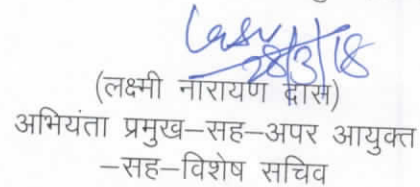 28/3/18
(लक्ष्मी नारायण दास)
अभियंता प्रमुख–सह–अपर आयुक्त
–सह–विशेष सचिव